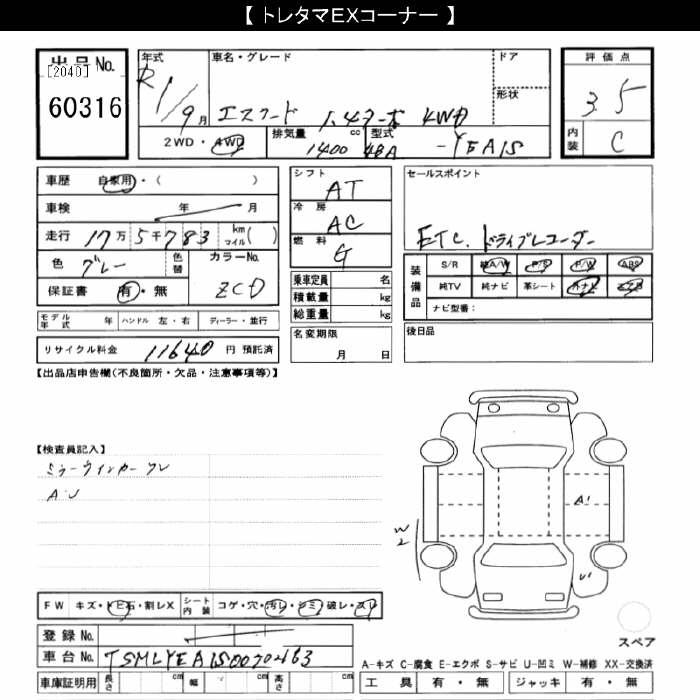 【 トレタマEXコーナー 】
出品No.
[2040]
60316
年式
R1/9月
車名・グレード
エスクード 1.4ターボ 4WD
ドア
形状
評価点
3.5
内装
C
2WD・4WD
排気量 1400 cc
型式 4BA-YEA1S
車歴 自家用・( )
車検 年 月
走行 17万5千783 km マイル( )
色 グレー
色替
カラーNo. ZCD
保証書 有・無
シフト
AT
冷房
AC
燃料
G
乗車定員 名
積載量 kg
総重量 kg
セールスポイント
ETC. ドライブレコーダー
装備品
S/R 純A/W P/S P/W ABS
純TV 純ナビ 革シート 外ナビ エアB
ナビ型番：
モデル年式 年 ハンドル 左・右 ディーラー・並行
名変期限
月 日
後日品
リサイクル料金 11640 円 預託済
【出品店申告欄(不良箇所・欠品・注意事項等)】
【検査員記入】
ミラーウインカーワレ
A・U
A1
W2
U1
FW キズ・トビ石・割レX シート内装 コゲ・穴・汚レ・シミ・破レ・スレ
スペア
登録No.
車台No. TSMLYEA1S00702463
A-キズ C-腐食 E-エクボ S-サビ U-凹ミ W-補修 XX-交換済
車庫証明用 長さ cm 幅 cm 高さ cm
工具 有・無 ジャッキ 有・無